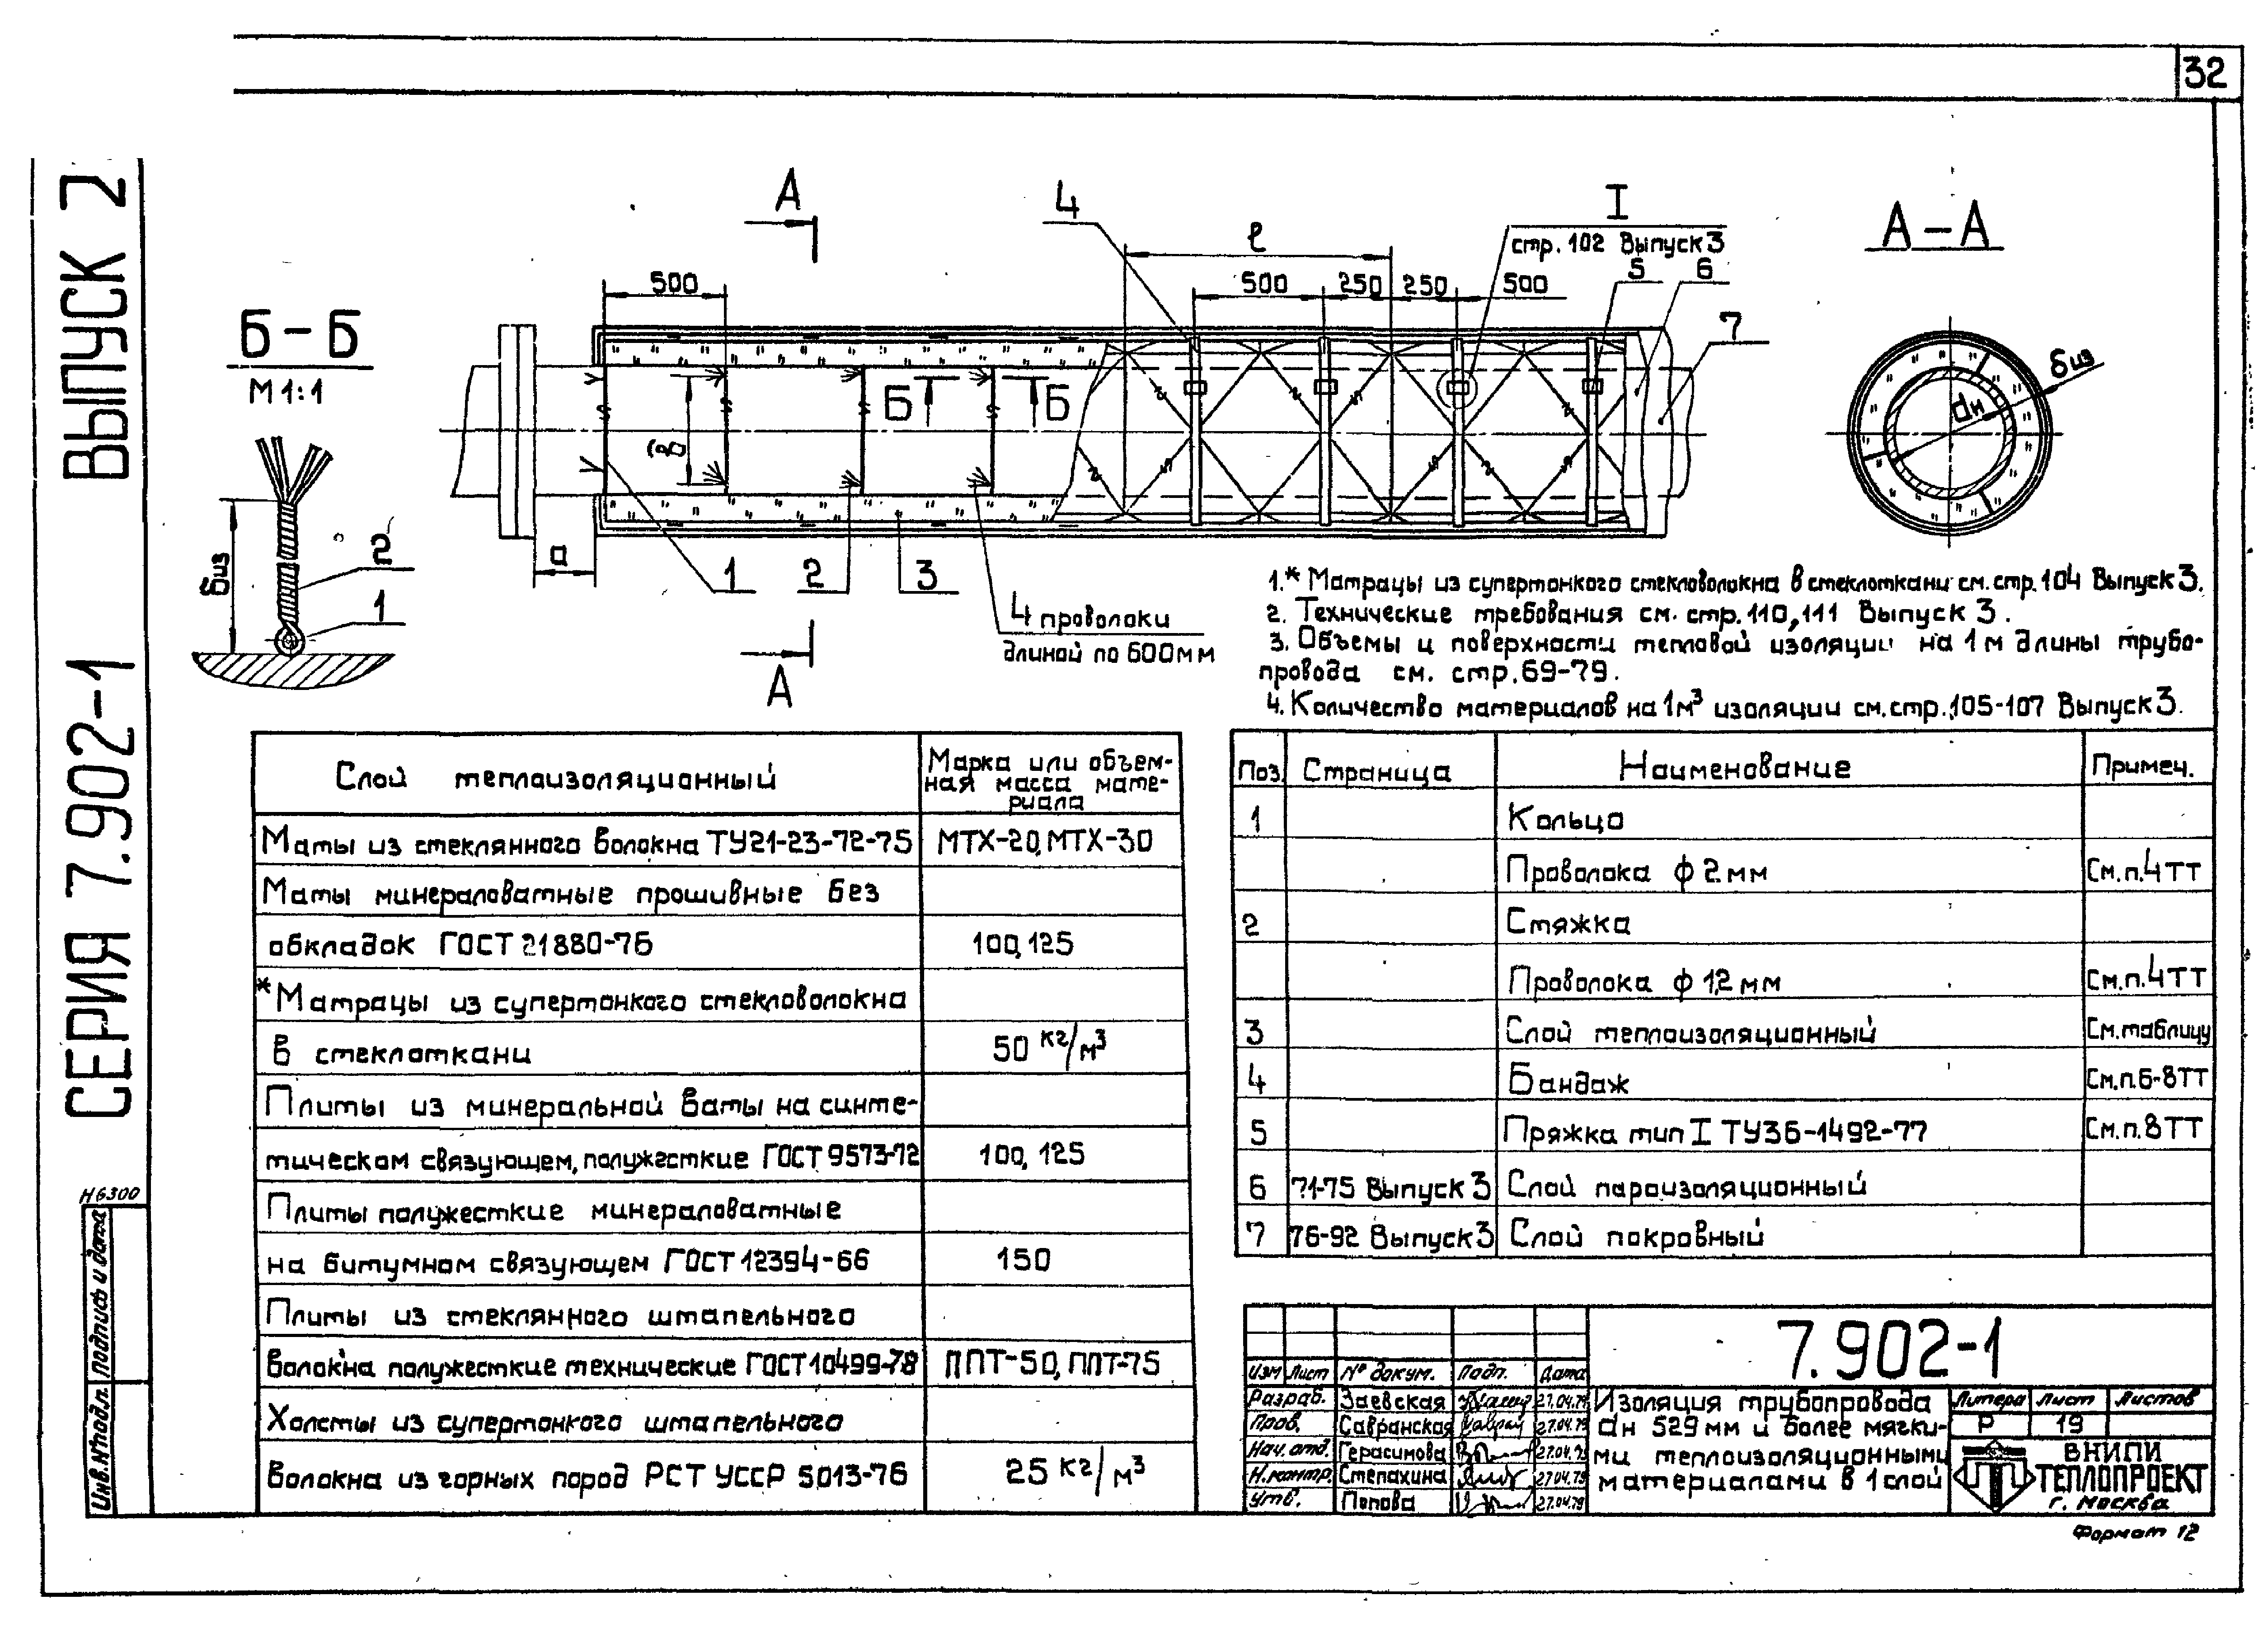 32
СЕРИЯ 7.902-1 ВЫПУСК 2
Б-Б
М 1:1
бuз
2
1
А
А
500
4
l
500
250
250
500
I
стр. 102 Выпуск 3
5
6
7
Б
Б
в
а
1
2
3
4 проволоки
длиной по 600мм
А-А
dн
биз
1.* Матрацы из супертонкого стекловолокна в стеклоткани см. стр. 104 Выпуск 3.
2. Технические требования см. стр. 110,111 Выпуск 3.
3. Объемы и поверхности тепловой изоляции на 1м длины трубо-
провода см. стр. 69-79.
4. Количество материалов на 1м³ изоляции см. стр. 105-107 Выпуск 3.
Слой теплоизоляционный
Марка или объем-
ная масса мате-
риала
Маты из стеклянного волокна ТУ21-23-72-75 МТХ-20, МТХ-30
Маты минераловатные прошивные без
обкладок ГОСТ 21880-76 100, 125
*Матрацы из супертонкого стекловолокна
в стеклоткани 50 кг/м³
Плиты из минеральной ваты на синте-
тическом связующем, полужесткие ГОСТ 9573-72 100, 125
Плиты полужесткие минераловатные
на битумном связующем ГОСТ 12394-66 150
Плиты из стеклянного штапельного
волокна полужесткие технические ГОСТ 10499-78 ППТ-50, ППТ-75
Холсты из супертонкого штапельного
волокна из горных пород РСТ УССР 5013-76 25 кг/м³
Поз. Страница Наименование Примеч.
1 Кольцо
Проволока ф 2 мм См.п.4ТТ
2 Стяжка
Проволока ф 1,2 мм См.п.4ТТ
3 Слой теплоизоляционный См.таблицу
4 Бандаж См.п.6-8ТТ
5 Пряжка тип I ТУ36-1492-77 См.п.8ТТ
6 71-75 Выпуск 3 Слой пароизоляционный
7 76-92 Выпуск 3 Слой покровный
7.902-1
Изм Лист № докум. Подп. Дата
Разраб. Заевская 27.04.79
Пров. Савранская 27.04.79
Нач. отд. Герасимова 27.04.79
Н.контр. Степахина 27.04.79
Утв. Попова 27.04.79
Изоляция трубопровода
dн 529 мм и более мягки-
ми теплоизоляционными
материалами в 1 слой
Литера Лист Листов
Р 19
ВНИПИ
ТЕПЛОПРОЕКТ
г. Москва
Формат 12
Н6300
Инв.№подл. Подпись и дата